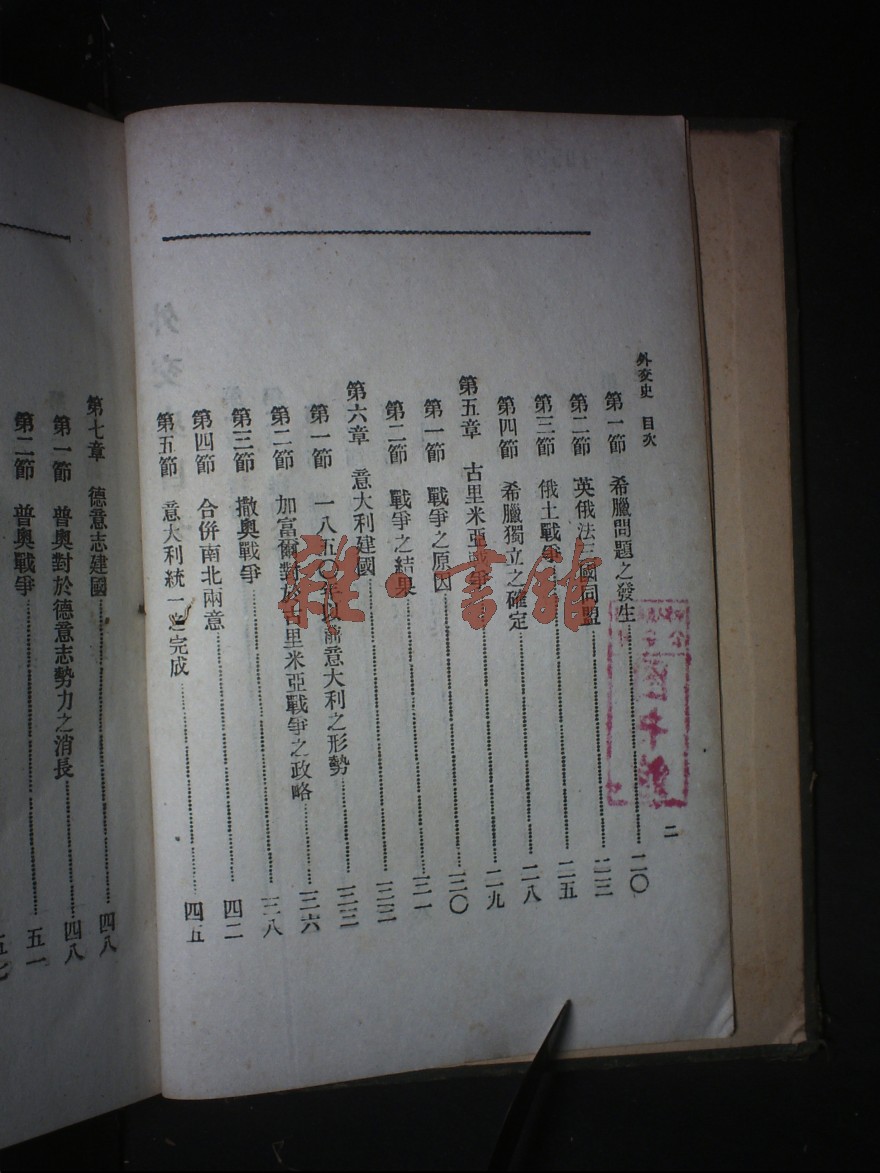 外交史 目次
二
第一節 希臘問題之發生 二〇
第二節 英俄法三國同盟 二三
第三節 俄土戰爭 二五
第四節 希臘獨立之確定 二八
第五章 古里米亞戰爭 二九
第一節 戰爭之原因 三〇
第二節 戰爭之結果 三一
第六章 意大利建國 三三
第一節 一八五〇年以前意大利之形勢 三三
第二節 加富爾對於古里米亞戰爭之政略 三六
第三節 撒奧戰爭 三八
第四節 合倂南北兩意 四二
第五節 意大利統一之完成 四五
第七章 德意志建國 四八
第一節 普奧對於德意志勢力之消長 四八
第二節 普奧戰爭 五一
五七
雜·書館